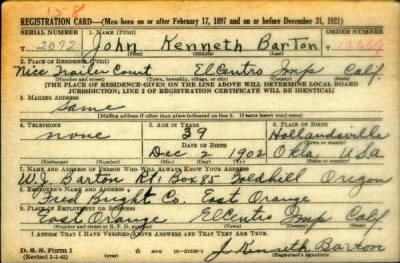 158
REGISTRATION CARD—(Men born on or after February 17, 1897 and on or before December 31, 1921)
SERIAL NUMBER 1. NAME (Print) ORDER NUMBER
2072 John Kenneth Barton
(First) (Middle) (Last)
2. PLACE OF RESIDENCE (Print)
Nice Trailer Court El Centro Imp Calif.
(Number and street) (Town, township, village, or city) (County) (State)
[THE PLACE OF RESIDENCE GIVEN ON THE LINE ABOVE WILL DETERMINE LOCAL BOARD
JURISDICTION; LINE 2 OF REGISTRATION CERTIFICATE WILL BE IDENTICAL]
3. MAILING ADDRESS
Same
[Mailing address if other than place indicated on line 2. If same insert word same]
4. TELEPHONE 5. AGE IN YEARS 6. PLACE OF BIRTH
none 39 Hollandsville
DATE OF BIRTH (Town or county)
Dec 2 1902 Okla USa
(Exchange) (Number) (Mo.) (Day) (Yr.) (State or country)
7. NAME AND ADDRESS OF PERSON WHO WILL ALWAYS KNOW YOUR ADDRESS
W.J. Barton Rt 1 Box 85 Goldhill Oregon
8. EMPLOYER'S NAME AND ADDRESS
Fred Bright Co. East Orange
9. PLACE OF EMPLOYMENT OR BUSINESS
East Orange El Centro Imp Calif
(Number and street or R. F. D. number) (Town) (County) (State)
I AFFIRM THAT I HAVE VERIFIED ABOVE ANSWERS AND THAT THEY ARE TRUE.
D. S. S. Form 1
(Revised 1-1-42) (over)
J. Kenneth Barton
(Registrant's signature)